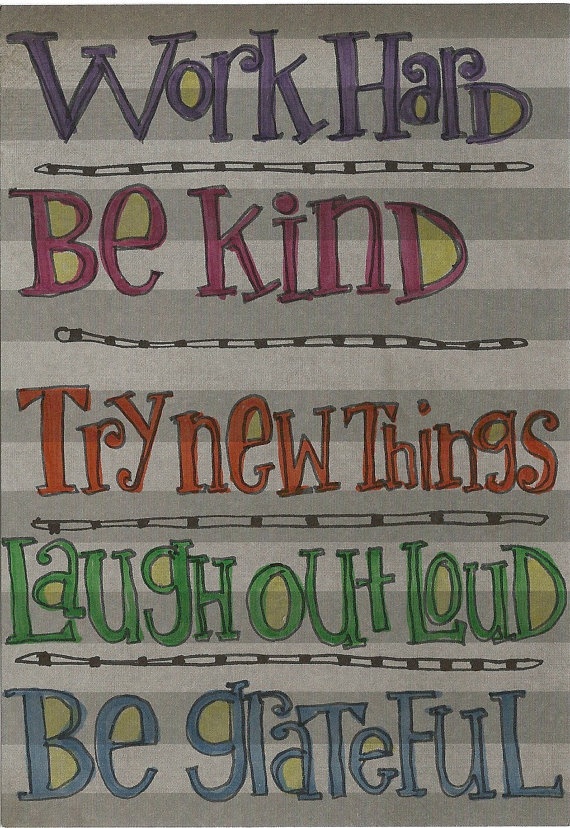 Work Hard
Be Kind
Try new Things
Laugh out Loud
Be grateful